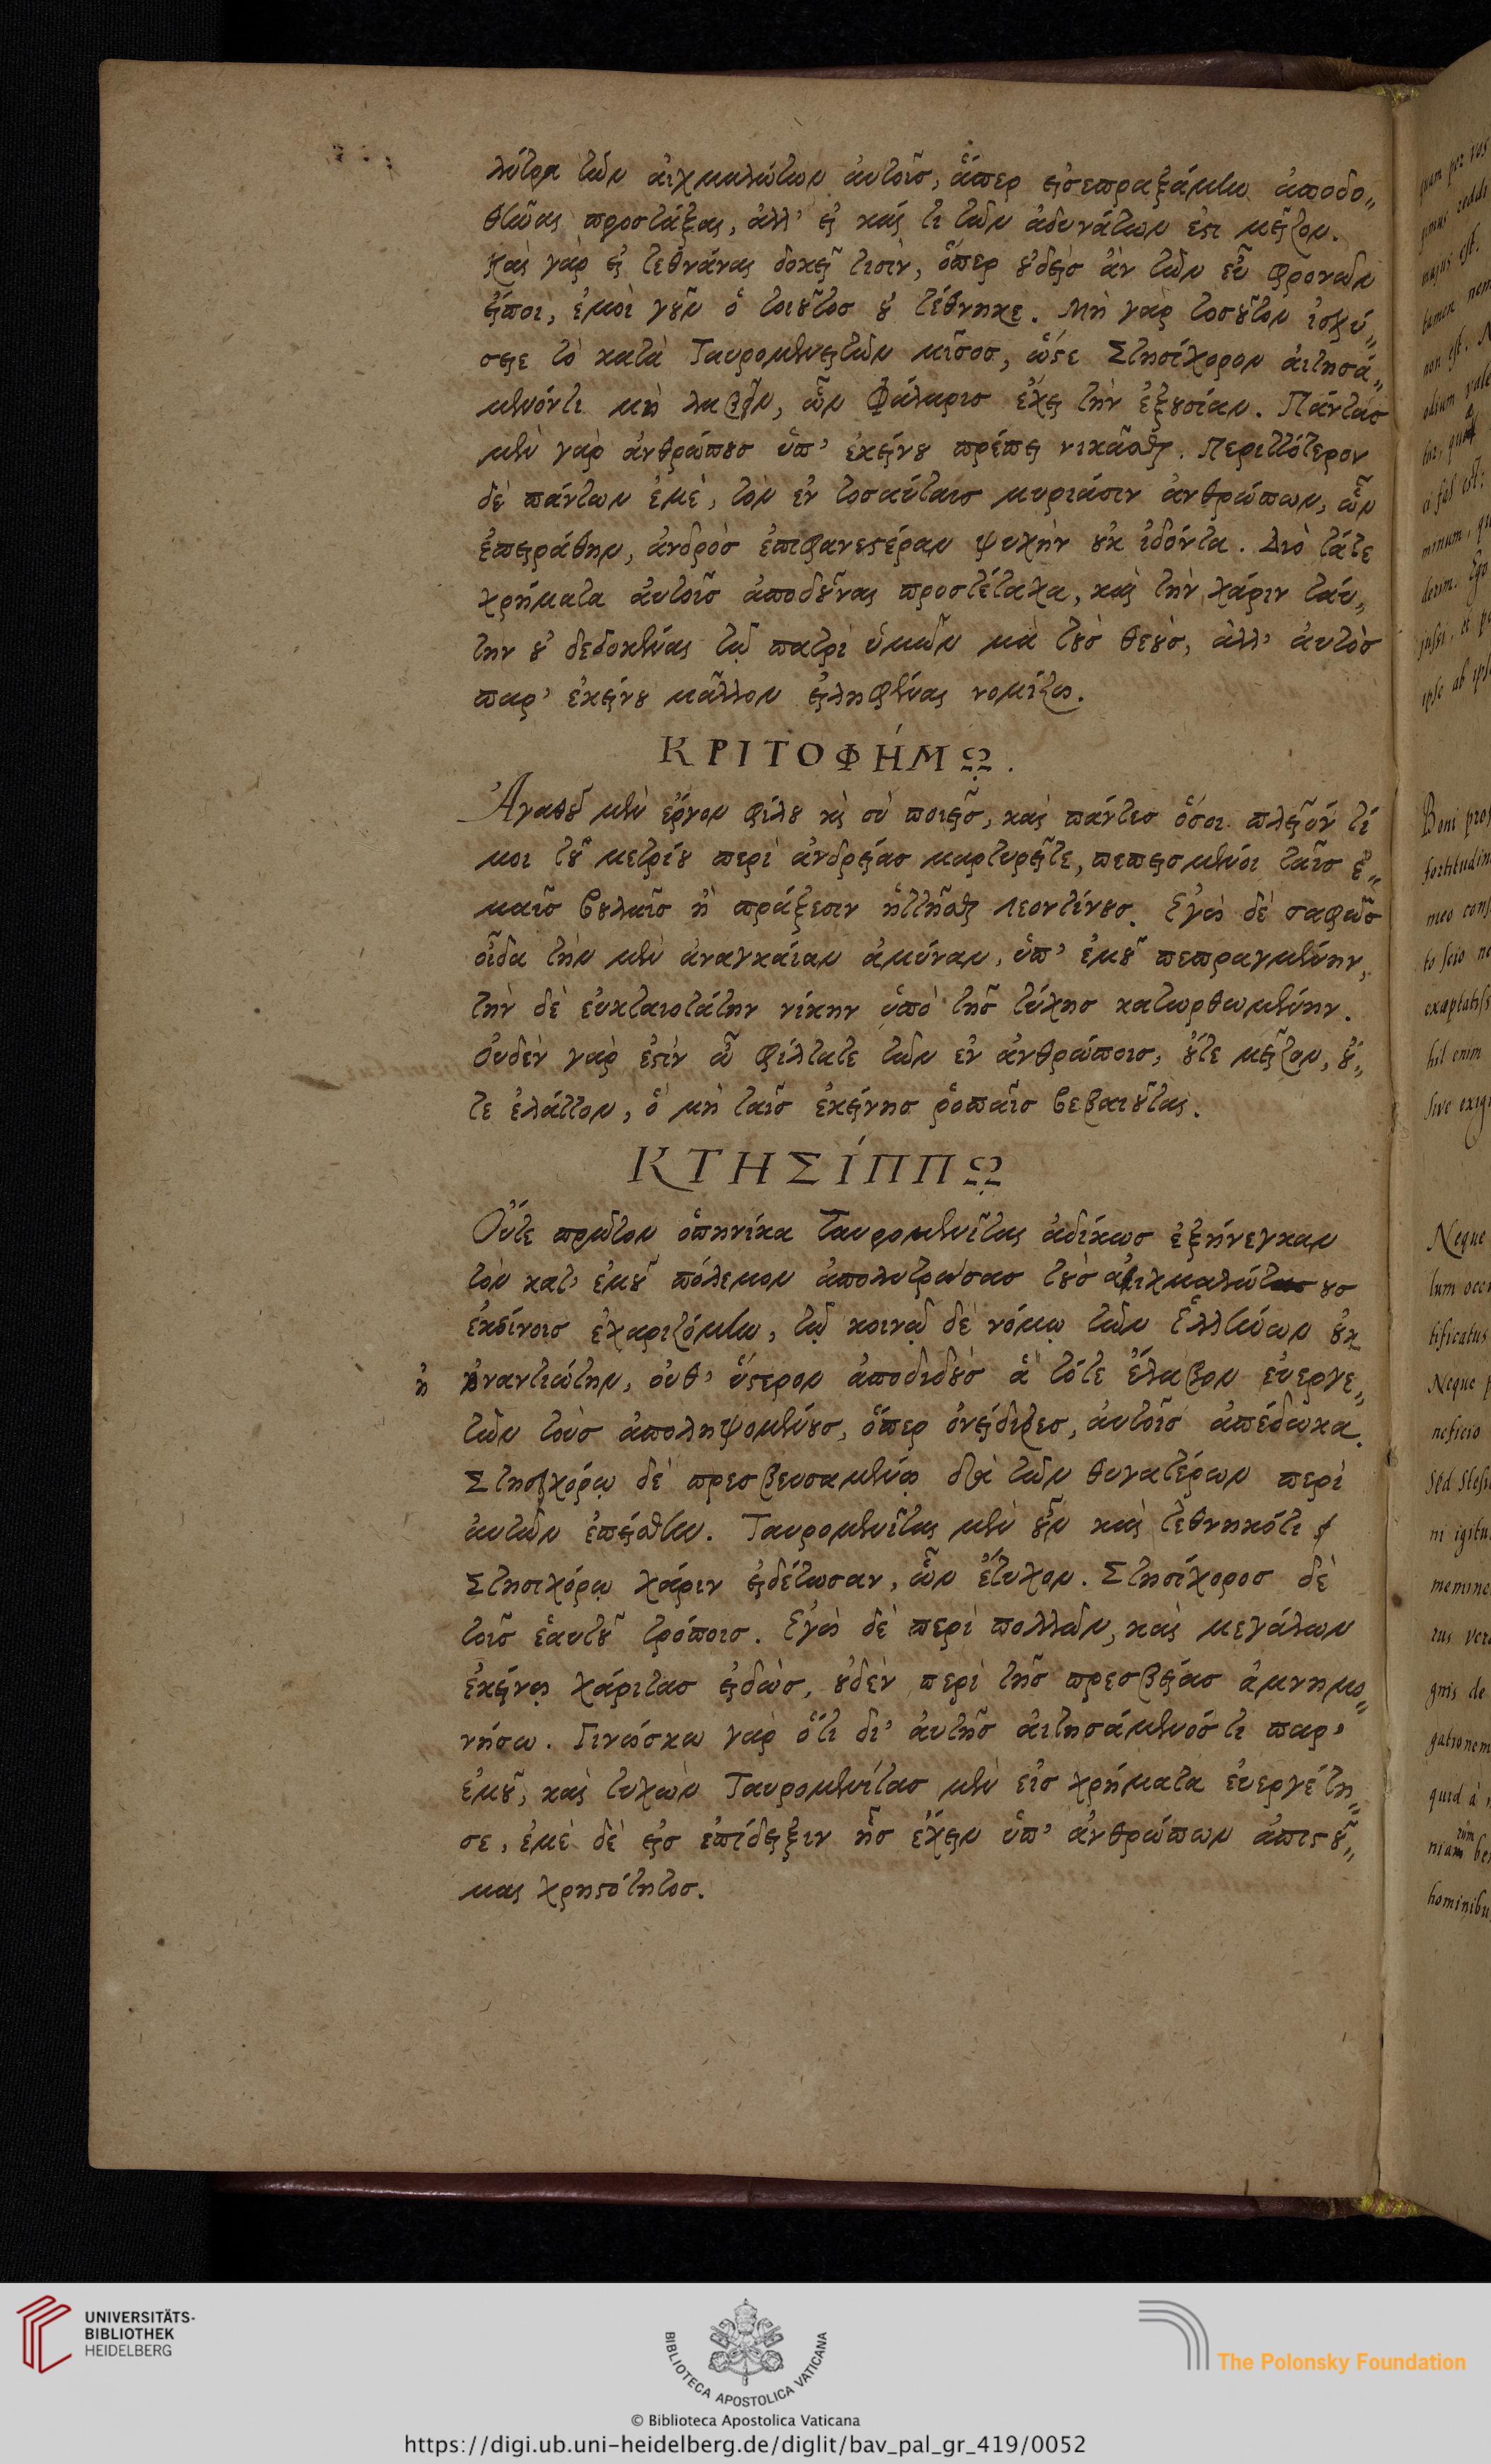 λύτρα τῶν αἰχμαλώτων ἀυτοῖς, ἅπερ εἰσεπραξάμην ἀποδο„
θῆναι προστάξας, ἀλλ' εἰ καί τι τῶν ἀδυνάτων ἐστι μεῖζον.
Καὶ γὰρ εἰ τεθνάναι δοκεῖ τισὶν, ὅπερ οὐδεὶς ἂν τῶν εὖ φρονῶν
εἴποι, ἐμοὶ γοῦν ὁ τοιοῦτος οὐ τέθνηκε. Μὴ γὰρ τοσοῦτον ἰσχύ„
σειε τὸ κατὰ Ταυρομενειτῶν μῖσος, ὥστε Στησίχορον ἀιτησά„
μενόν τι μὴ λαβεῖν, ὧν Φάλαρις ἔχει τὴν ἐξουσίαν. Πάντας
μὲν γὰρ ἀνθρώπους ὑπ' ἐκείνου πρέπει νικᾶσθαι. Περιττότερον
δὲ πάντων ἐμὲ, τὸν ἐν τοσαύταις μυριάσιν ἀνθρώπων, ὧν
ἐπειράθην, ἀνδρὸς ἐπιφανεστέραν ψυχὴν οὐκ ἰδόντα. Διὸ τάτε
χρήματα ἀυτοῖς ἀποδοῦναι προστέταχα, καὶ τὴν χάριν ταύ„
την οὐ δεδοκέναι τῷ πατρὶ ὑμῶν μὰ τοὺς θεοὺς, ἀλλ' ἀυτὸς
παρ' ἐκείνου μᾶλλον εἰληφέναι νομίζω.
ΚΡΙΤΟΦΉΜῼ.
Ἀγαθοῦ μὲν ἔργον φίλου κὶ σὺ ποιεῖς, καὶ πάντες ὅσοι πλεῖόν τί
μοι τοῦ μετρίου περὶ ἀνδρείας μαρτυρεῖτε, πεπεισμένοι ταῖς ἐ„
μαῖς βουλαῖς ἢ πράξεσιν ἡττῆσθαι Λεοντίνους. Ἐγὼ δὲ σαφῶς
οἶδα τὴν μὲν ἀναγκαίαν ἀμύναν, ὑπ' ἐμοῦ πεπραγμένην,
τὴν δὲ ἐυκταιοτάτην νίκην ὑπὸ τῆς τύχης κατωρθωμένην.
Ουδὲν γὰρ ἐστὶν ὦ φίλτατε τῶν ἐν ἀνθρώποις, οὔτε μεῖζον, οὔ„
τε ἐλάττον, ὃ μὴ ταῖς ἐκείνης ῥοπαῖς βεβαιοῦται.
ΚΤΗΣΊΠΠῼ
Οὔτε πρῶτον ὁπηνίκα Ταυρομενῖται ἀδίκως ἐξήνεγκαν
τὸν κατ' ἐμοῦ πόλεμον ἀπολυτρώσας τοὺς αἰχμαλώτους
ἐκείνοις ἐχαριζόμην, τῷ κοινῷ δὲ νόμῳ τῶν Ἑλλήνων οὐκ
ἠναντιώτην, ὀυθ' ὕστερον ἀποδιδοὺς ἃ τότε ἔλαβον ἐυεργε„
τῶν τοὺς ἀποληψομένους, ὅπερ ὀνείδιζες, ἀυτοῖς ἀπέδωκα.
Στησιχόρῳ δὲ πρεσβευσαμένῳ διὰ τῶν θυγατέρων περὶ
ἀυτῶν ἐπείσθην. Ταυρομενῖται μὲν οὖν καὶ τεθνηκότι
Στησιχόρῳ χάριν εἰδέτωσαν, ὧν ἔτυχον. Στησίχορος δὲ
τοῖς ἑαυτοῦ τρόποις. Ἐγὼ δὲ περὶ πολλῶν, καὶ μεγάλων
ἐκείνῳ χάριτας εἰδὼς, οὐδὲν περὶ τῆς πρεσβείας ἀμνημο„
νήσω. Γινώσκω γὰρ ὅτι δι' ἀυτῆς ἀιτησάμενός τι παρ'
ἐμοῦ, καὶ τυχὼν Ταυρομενίτας μὲν εἰς χρήματα ἐυεργέτη„
σε, ἐμὲ δὲ εἰς ἐπίδειξιν ἧς ἔχειν ὑπ' ἀνθρώπων ἀπιστοῦ„
μαι χρηστότητος.
ἠ
Boni
fortitudin
meo
hil enim
Neque
tificatus
Neque
neficio
Sed
ni igitu
gnis de
gationem
quid à
hominibu
UNIVERSITÄTS-
BIBLIOTHEK
HEIDELBERG
BIBLIOTECA APOSTOLICA VATICANA
The Polonsky Foundation
© Biblioteca Apostolica Vaticana
https://digi.ub.uni-heidelberg.de/diglit/bav_pal_gr_419/0052